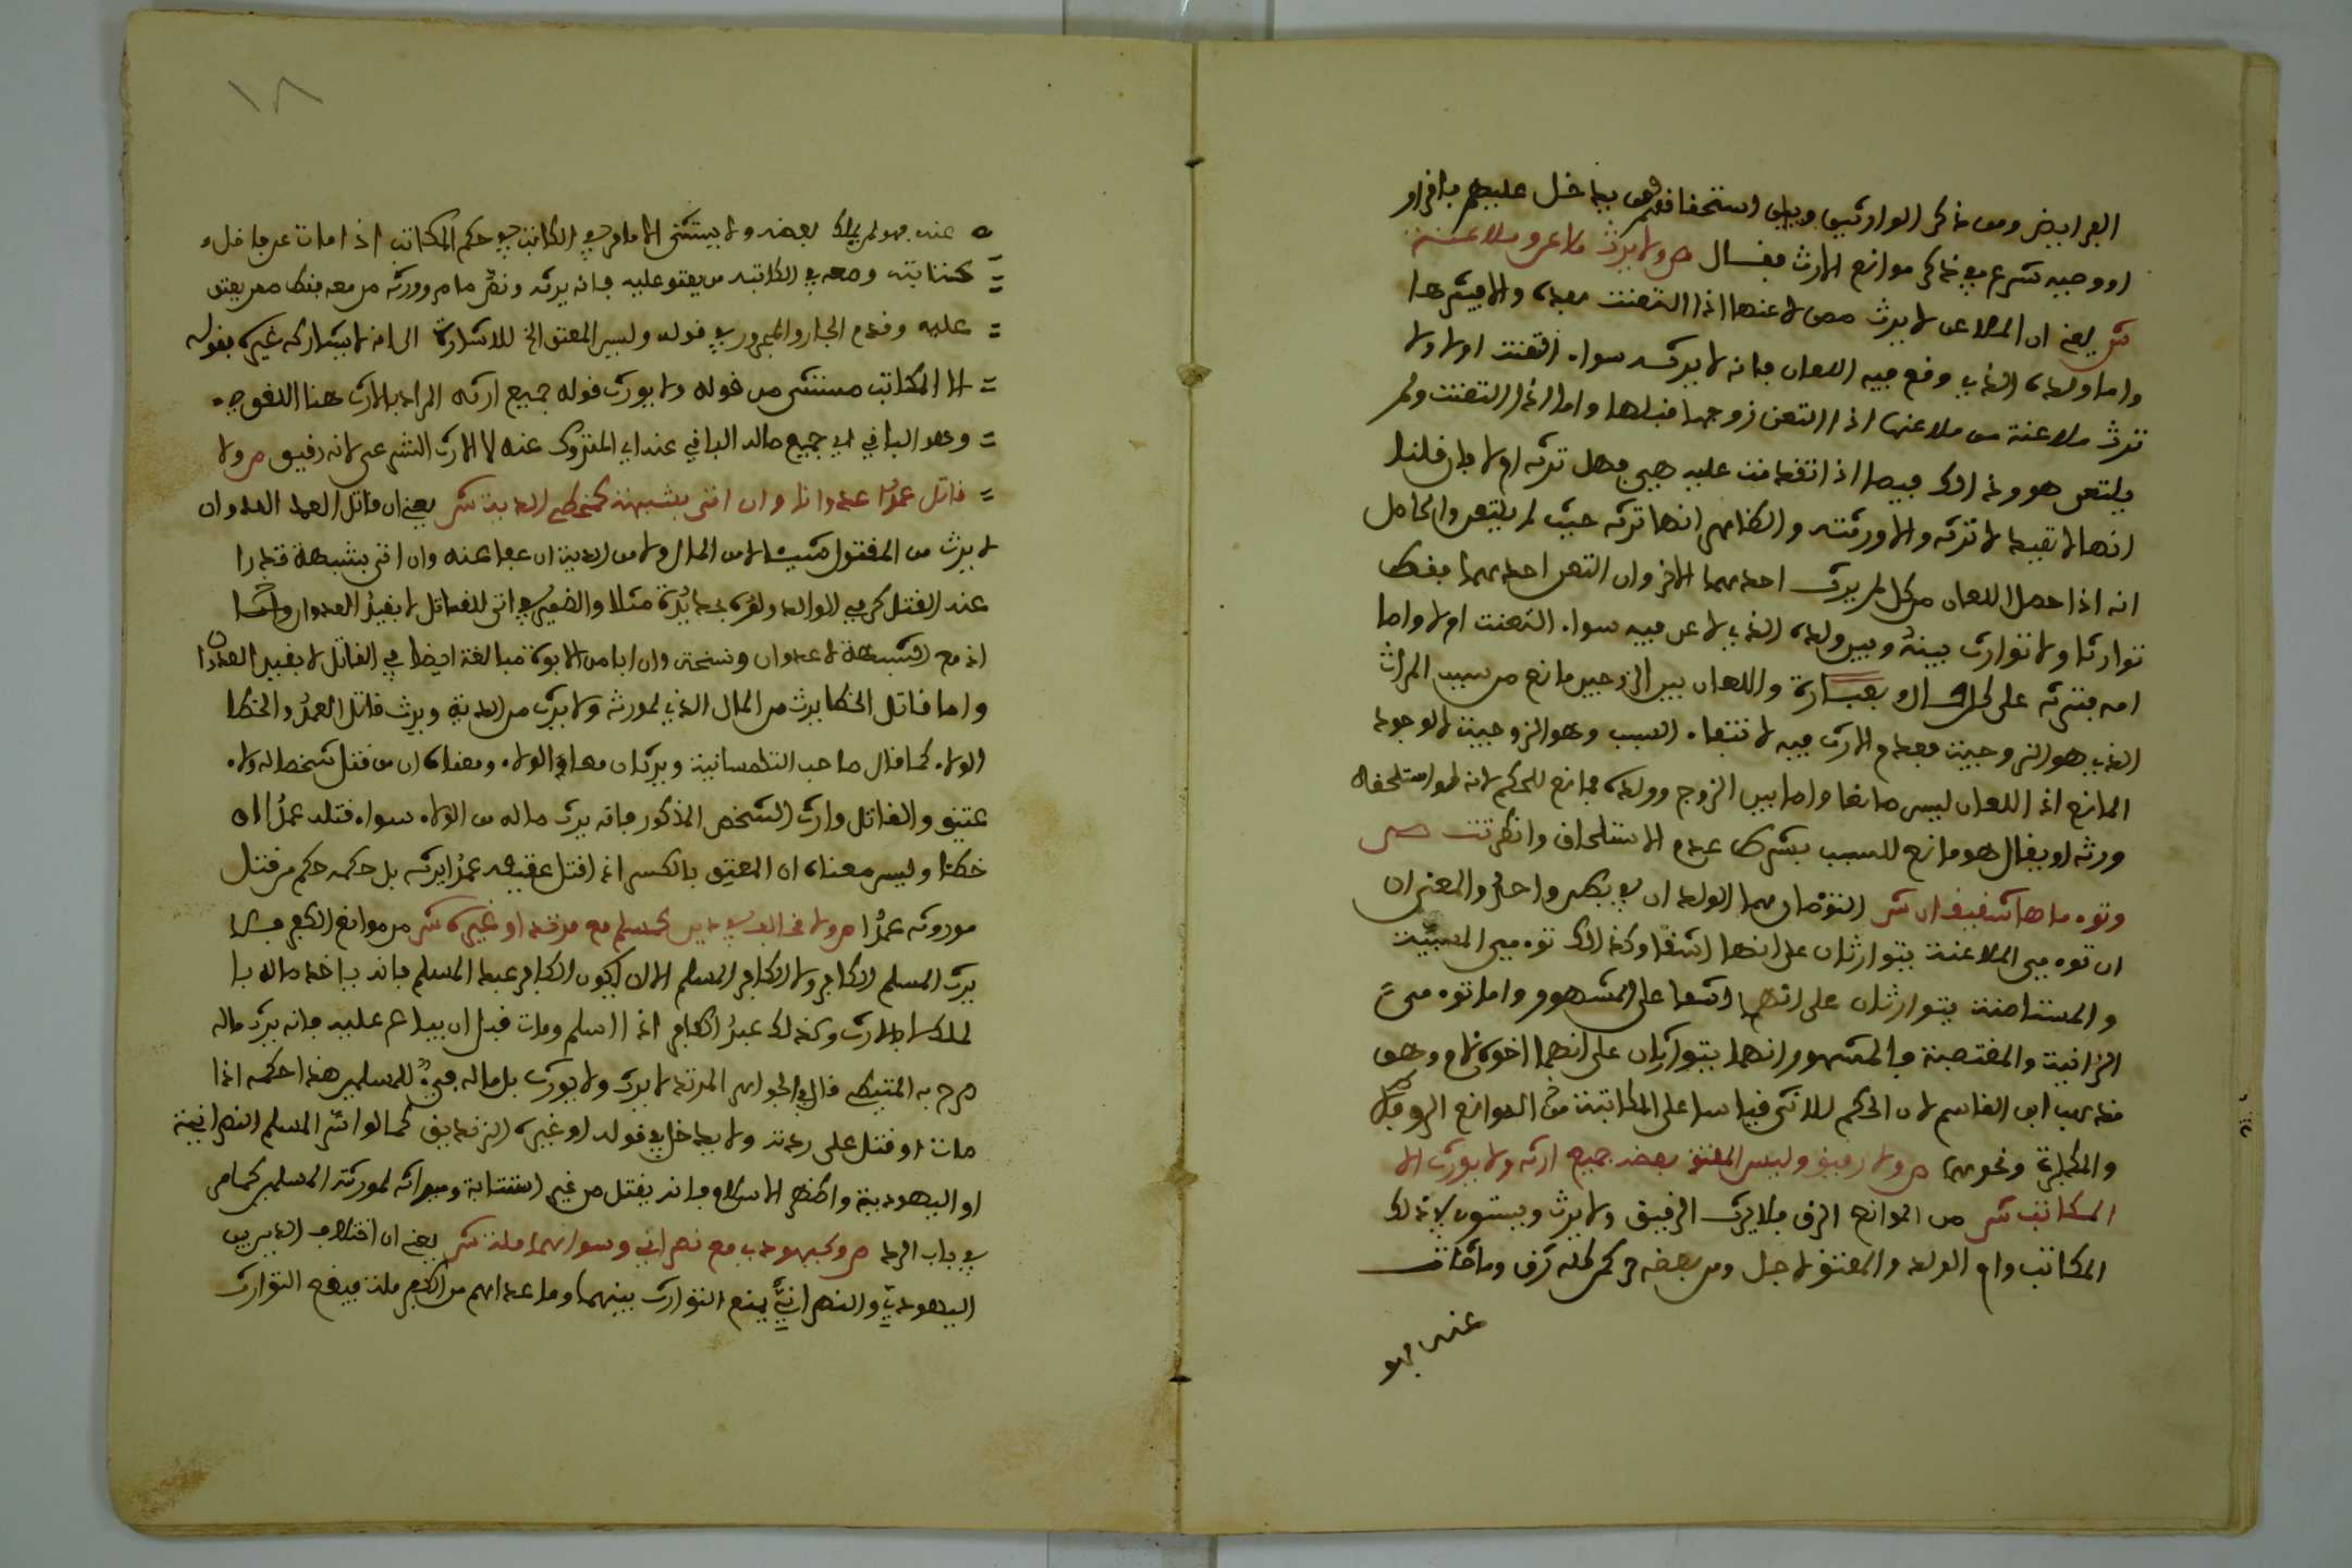 الفرايض ومن ذكر الوارثين وبيان استحقاقهم فيما خل عليهم باقرار
او وجبه شرع في ذكر موانع الارث فقال ص ولا يرث ملاعن وملاعنة
ش يعني ان الملاعن لا يرث ممن لاعنها اذا التعنت بعده والا فيرثها
واما ولده الذي وقع فيه اللعان فانه لا يرثه سواء التعنت او لا ولا
ترث ملاعنة من ملاعنها اذا التعن زوجها قبلها واما اذا التعنت ولم
يلتعن هو وذالك فيما اذا تقدمت عليه هي فهل ترثه او لا فان قلنا
انها لا تعيد لا ترثه والا ورثته والظاهر انها ترثه حيث لم يلتعن والحاصل
انه اذا حصل اللعان من كل لم يرث احدهما الاخر وان التعن احدهما فقط
توارثا ولا توارث بينه وبين ولده الذي لاعن فيه سواء التعنت او لا واما
امه فترثه على كل حال بعبارة واللعان بين الزوجين مانع من سبب الميراث
الذي هو الزوجية فعدم الارث فيه لانتفاء السبب وهو الزوجية لا لوجود
المانع اذ اللعان ليس مانعا واما بين الزوج وولده فمانع للحكم لانه لو استلحقه
ورثه او يقال هو مانع للسبب بشرط عدم الاستلحاق وانظر تت ص
وتوءماها شقيقان ش التوءمان هما الولدان في بطن واحد والمعنى ان
ان توءمي الملاعنة يتوارثان على انهما اشقا وكذالك توءمي المسبية
والمستامنة يتوارثان على انهما اشقا على المشهور واما توءمي
الزانية والمغتصبة فالمشهور انهما يتوارثان على انهما اخوة لام وهو
مذهب ابن القاسم لان الحكم للانثى قياسا على المكاتبة من الموانع الرق
والمكاتبة ونحوهما ص ولا رقيق ولسيد المعتق بعضه جميع ارثه ولا يورث الا
المكاتب ش من الموانع الرق فلا يرث الرقيق ولا يورث ويستوي في ذلك
المكاتب وام الولد والمعتق لاجل ومن بعضه حر كمن كله رق وما مات
عنه فهو
١٨
عنه فهو لمن يملك بعضه ولا يستثنى الا ما مر في الكاتب في حكم المكاتب اذا مات عن ما فيه وفاء
كتابته ومعه في الكتابة من يعتق عليه فانه يرثه وتقدم ما مر وورثه من معه فقط ممن يعتق
عليه وقدم الجار والمجرور في قوله ولسيد المعتق الخ للاشارة الى انه لا يشاركه غيره بقوله
الا المكاتب مستثنى من قوله ولا يورث قوله جميع ارثه المراد بالارث هنا اللغوي
وهو الباقي اي جميع ماله الباقي عنه اي المتروك عنه لا الارث الشرعي لانه رقيق ص ولا
قاتل عمدًا عدوانا وان اتى بشبهة كمخطئ من الدية ش يعني ان قاتل العمد العدوان
لا يرث من المقتول شيئا لا من المال ولا من الدية ان عفا عنه وان اتى بشبهة تدرا
عنه القتل كرمي الوالد ولده بحديدة مثلا والضمير في اتى للقاتل لا بقيد العدوان والا
اذ مع الشبهة لا عدوان ونسخة وان ابا من الابوة مبالغة ايضا في القاتل لا بقيد العدوان
واما قاتل الخطا يرث من المال الذي لمورثه ولا يرث من الدية ويرث قاتل العمد والخطا
الولاء كما قال صاحب التلمسانية ويرثان معا في الولاء ومعناه ان من قتل شخصا له ولاء
عتيق والقاتل وارث الشخص المذكور فانه يرث ماله من الولاء سواء قتله عمدًا او
خطأ وليس معناه ان المعتق بالكسر اذا قتل عتيقه عمدًا يرثه بل حكمه حكم من قتل
مورثه عمدًا ص ولا مخالف في دين كمسلم مع مرتد او غيره ش من موانع الكفر فلا
يرث المسلم الكافر ولا الكافر المسلم الا ان يكون الكافر عبد المسلم فانه ياخذ ماله با
لملك لا بالارث وكذلك عبد الكافر اذا اسلم ومات قبل ان يباع عليه فانه يرث ماله
صرح به المتيطي قال في الجواهر المرتد لا يرث ولا يورث بل ماله فيء للمسلمين هذا حكمه اذا
مات او قتل على ردته ولا يدخل في قوله او غيره الزنديق كما لو انس المسلم النصرانية
او اليهودية واظهر الاسلام فانه يقتل من غير استتابة وميراثه لورثته المسلمين كما مر
في باب الردة ص وكيهودي مع نصراني وسواهما ملة ش يعني ان اختلاف الدين بين
اليهودي والنصراني يمنع التوارث بينهما وما عداهم من الكفر ملة فيقع التوارث